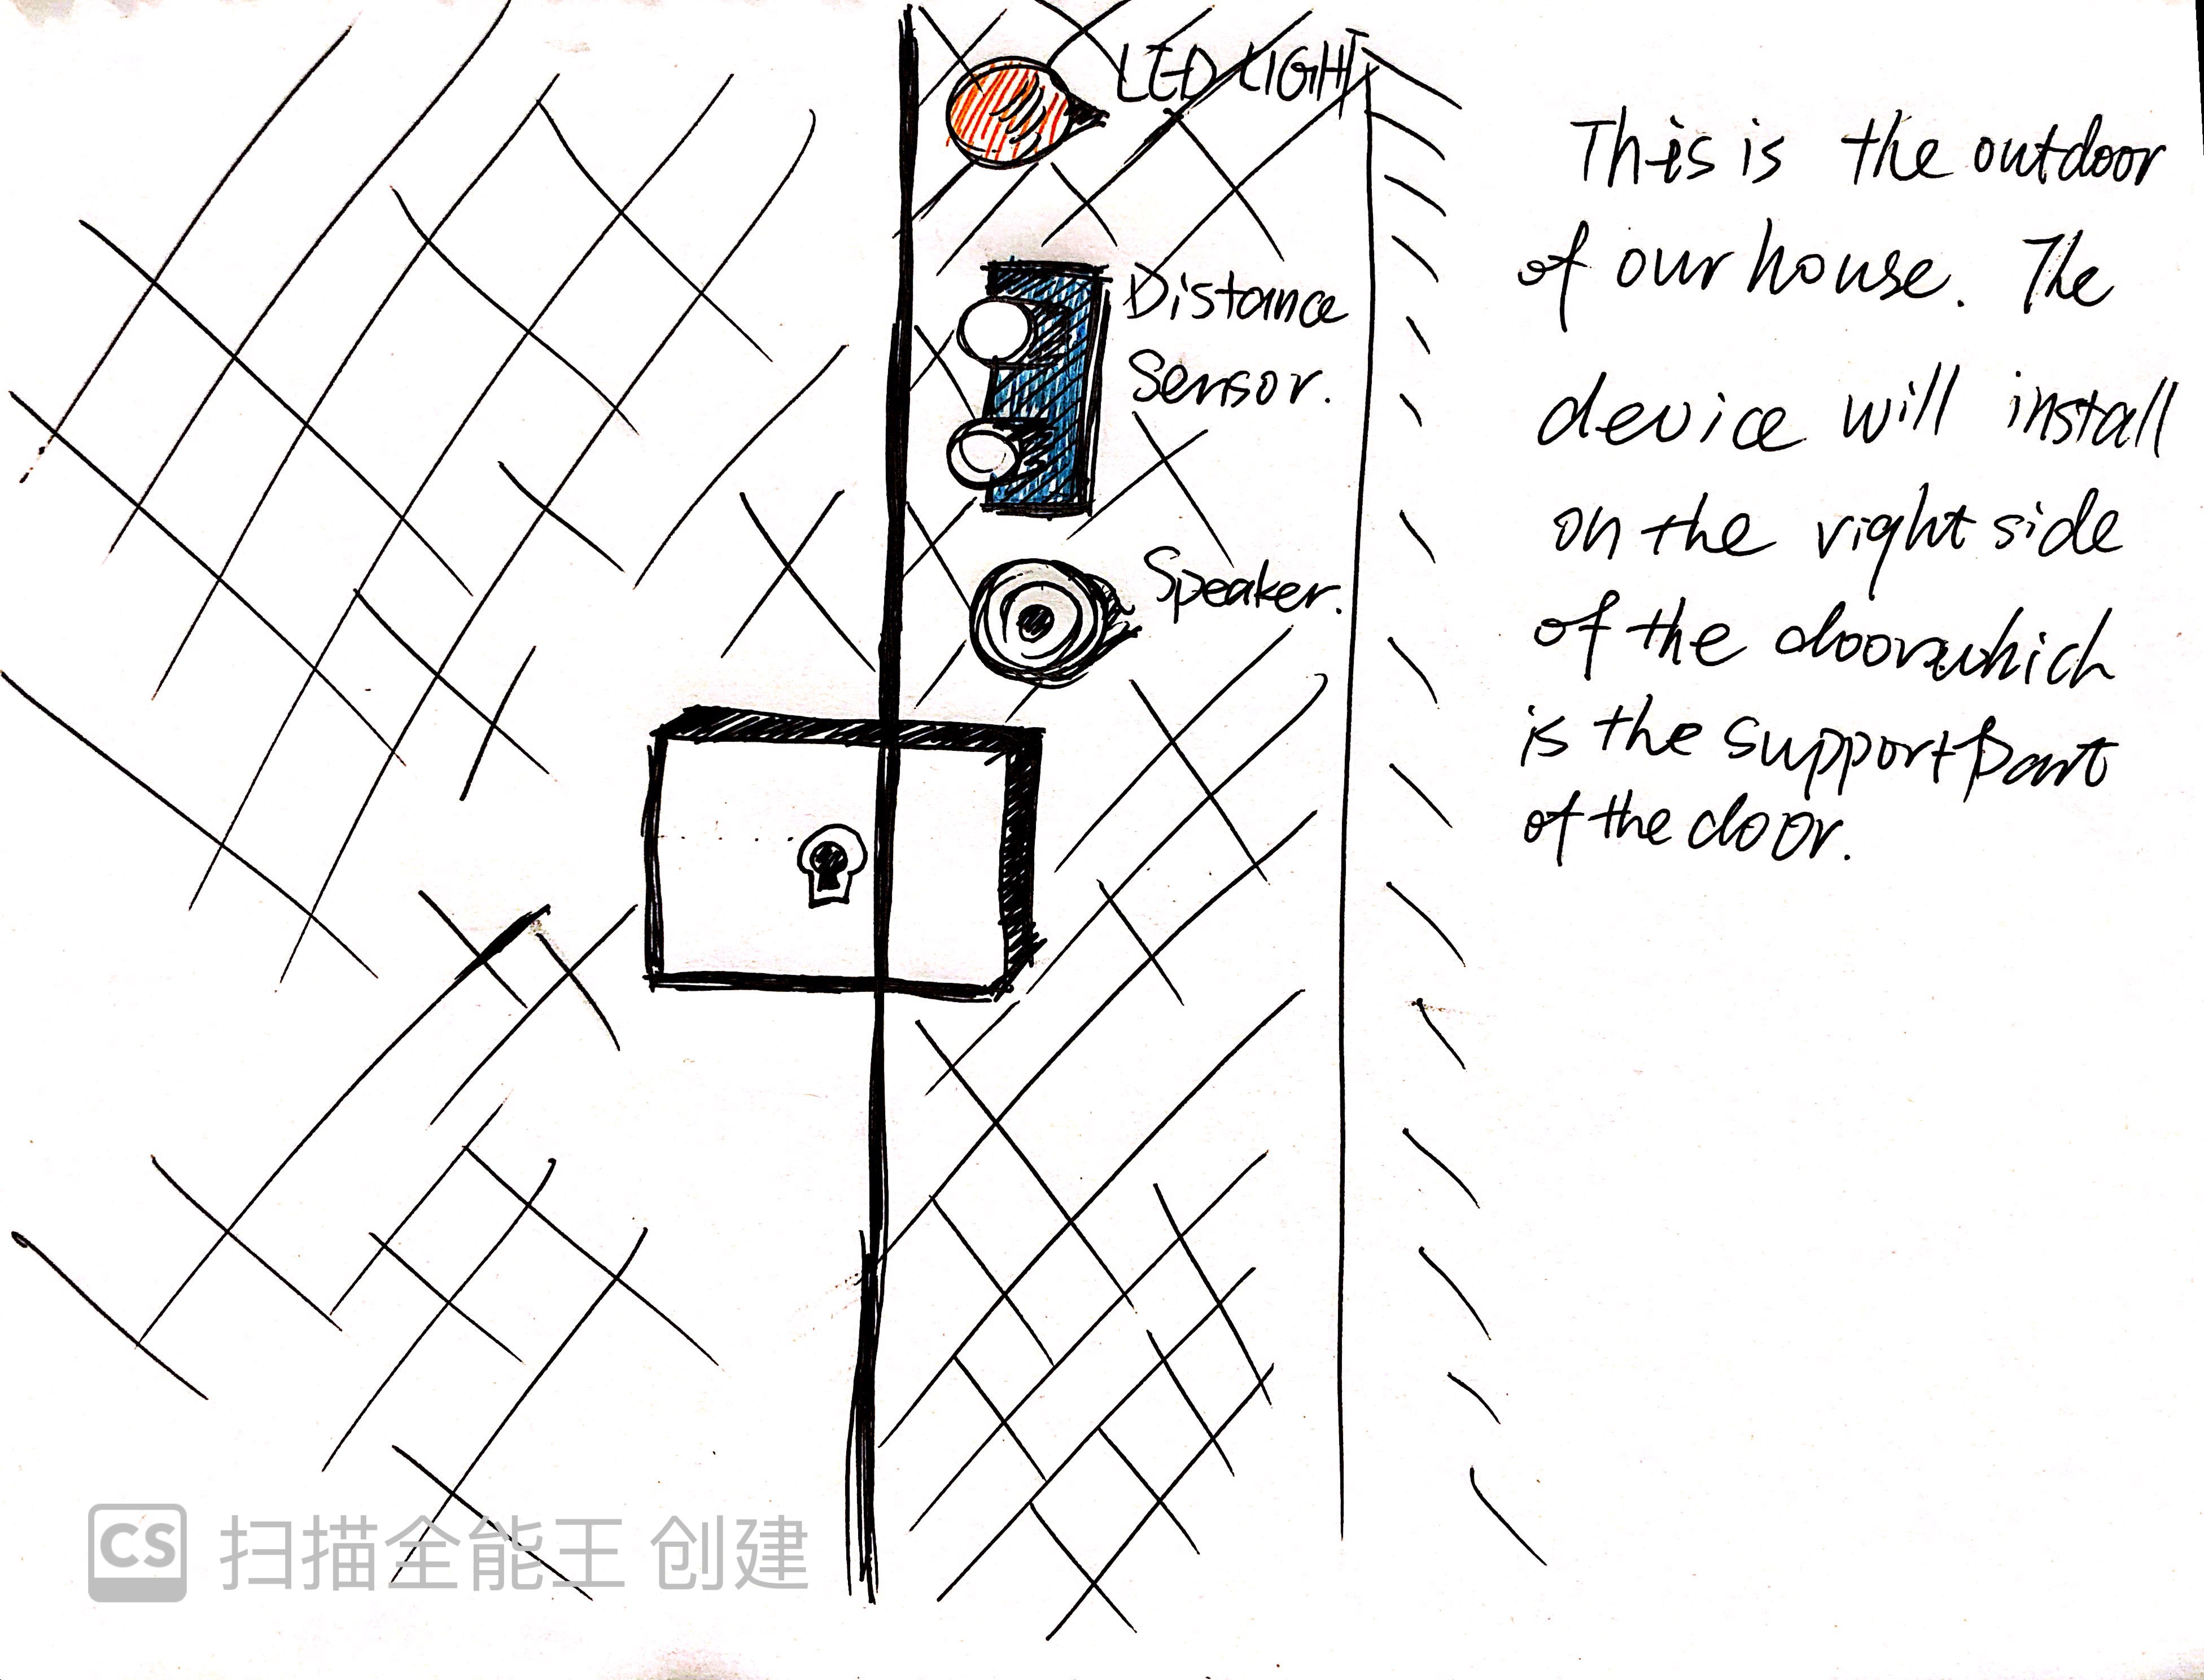 LED LIGHT
Distance
Sensor.
Speaker.
This is the outdoor
of our house. The
device will install
on the right side
of the door which
is the support part
of the door.
CS 扫描全能王 创建